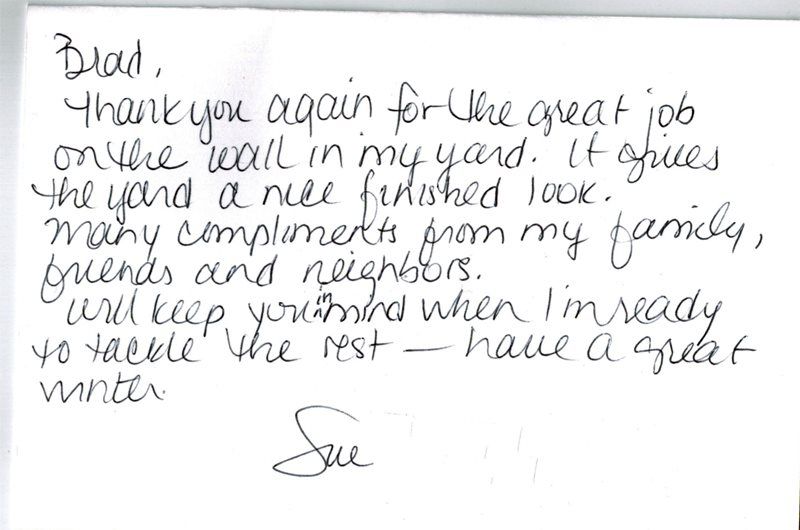 Brad,
Thank you again for the great job
on the wall in my yard. It gives
the yard a nice finished look.
Many compliments from my family,
friends and neighbors.
Will keep you in mind when I'm ready
to tackle the rest — have a great
winter.
Sue